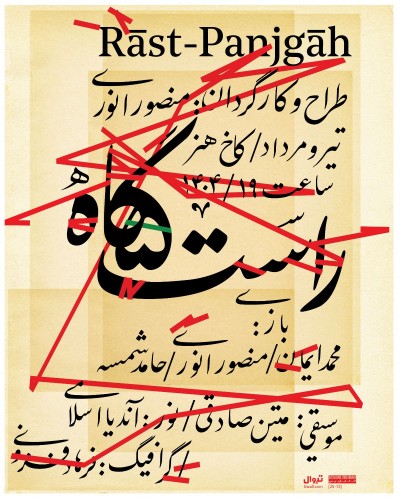 Rāst-Panjgāh
طراح و کارگردان: منصور انوری
تیر و مرداد / کاخ هنر
ساعت ۱۹ / ۱۴۰۴
راست پنجگاه
بازی:
محمد ایمان / منصور انوری / حامد شمسه
موسیقی: متین صادقی / نور: آندیا اسلامی
گرافیک: فرهاد فزونی
تیوال
tiwall.com